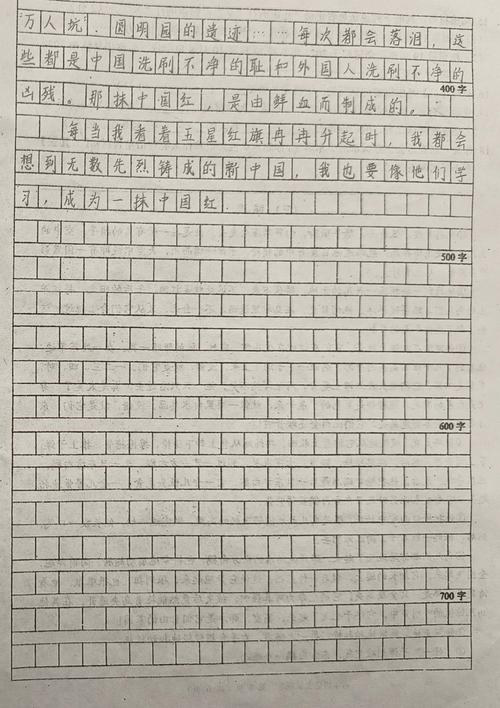 万人坑，圆明园的遗迹……每次都会落泪，这
些都是中国洗刷不净的耻和外国人洗刷不净的
400字
凶残。那抹中国红，是由鲜血而制成的。
每当我看着五星红旗冉冉升起时，我都会
想到无数先烈铸成的新中国，我也要像他们学
习，成为一抹中国红
500字
600字
700字